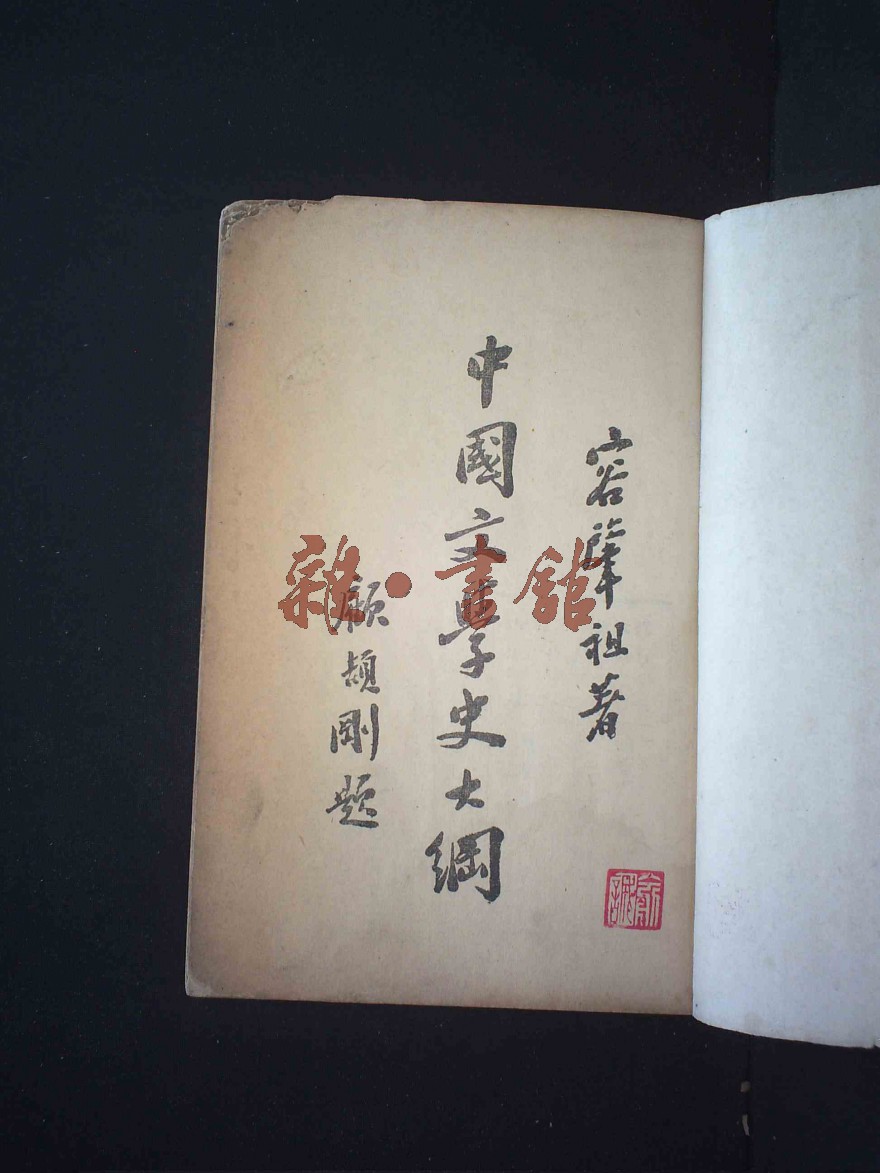 容肇祖著
中國文學史大綱
顧頡剛題
雜·書館